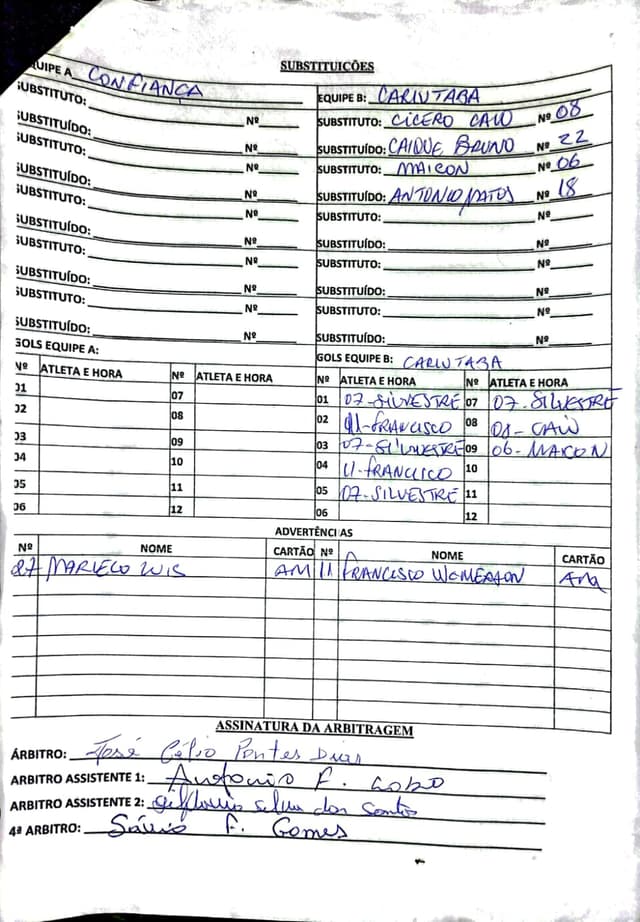 SUBSTITUIÇÕES
QUIPE A CONFIANÇA
SUBSTITUTO: Nº
SUBSTITUÍDO: Nº
SUBSTITUTO: Nº
SUBSTITUÍDO: Nº
SUBSTITUTO: Nº
SUBSTITUÍDO: Nº
SUBSTITUTO: Nº
SUBSTITUÍDO: Nº
SUBSTITUTO: Nº
SUBSTITUÍDO: Nº
EQUIPE B: CARIUTABA
SUBSTITUTO: CÍCERO CAIO Nº 08
SUBSTITUÍDO: CAIQUE BRUNO Nº 22
SUBSTITUTO: MAICON Nº 06
SUBSTITUÍDO: ANTONIO MATOS Nº 18
SUBSTITUTO: Nº
SUBSTITUÍDO: Nº
SUBSTITUTO: Nº
SUBSTITUÍDO: Nº
SUBSTITUTO: Nº
SUBSTITUÍDO: Nº
GOLS EQUIPE A:
Nº ATLETA E HORA Nº ATLETA E HORA
01 07
02 08
03 09
04 10
05 11
06 12
GOLS EQUIPE B: CARIUTABA
Nº ATLETA E HORA Nº ATLETA E HORA
01 07-SILVESTRE 07 07-SILVESTRE
02 11-FRANCISCO 08 08-CAIO
03 07-SILVESTRE 09 06-MAICON
04 11-FRANCISCO 10
05 07-SILVESTRE 11
06 12
ADVERTÊNCIAS
Nº NOME CARTÃO Nº NOME CARTÃO
27 LUIS AM 11 FRANCISCO AMA
ASSINATURA DA ARBITRAGEM
ÁRBITRO: José Célio Pontes Dias
ARBITRO ASSISTENTE 1: Antonio F. LOBO
ARBITRO ASSISTENTE 2: silva dos Santos
4ª ARBITRO: Sávio F. Gomes